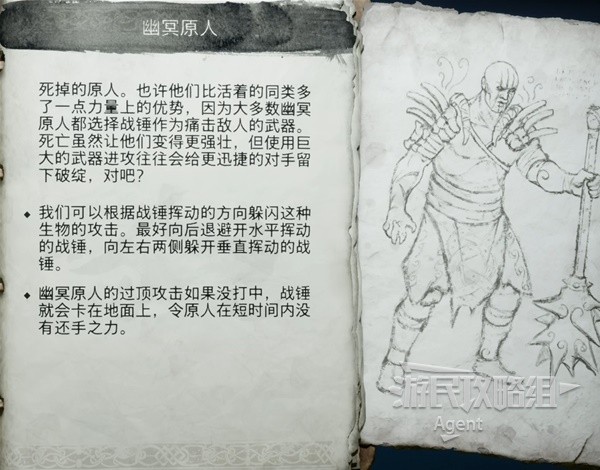 幽冥原人
死掉的原人。也许他们比活着的同类多
了一点力量上的优势，因为大多数幽冥
原人都选择战锤作为痛击敌人的武器。
死亡虽然让他们变得更强壮，但使用巨
大的武器进攻往往会给更迅捷的对手留
下破绽，对吧？
⬥ 我们可以根据战锤挥动的方向躲闪这种
生物的攻击。最好向后退避开水平挥动
的战锤，向左右两侧躲开垂直挥动的战
锤。
⬥ 幽冥原人的过顶攻击如果没打中，战锤
就会卡在地面上，令原人在短时间内没
有还手之力。
游民攻略组
Agent